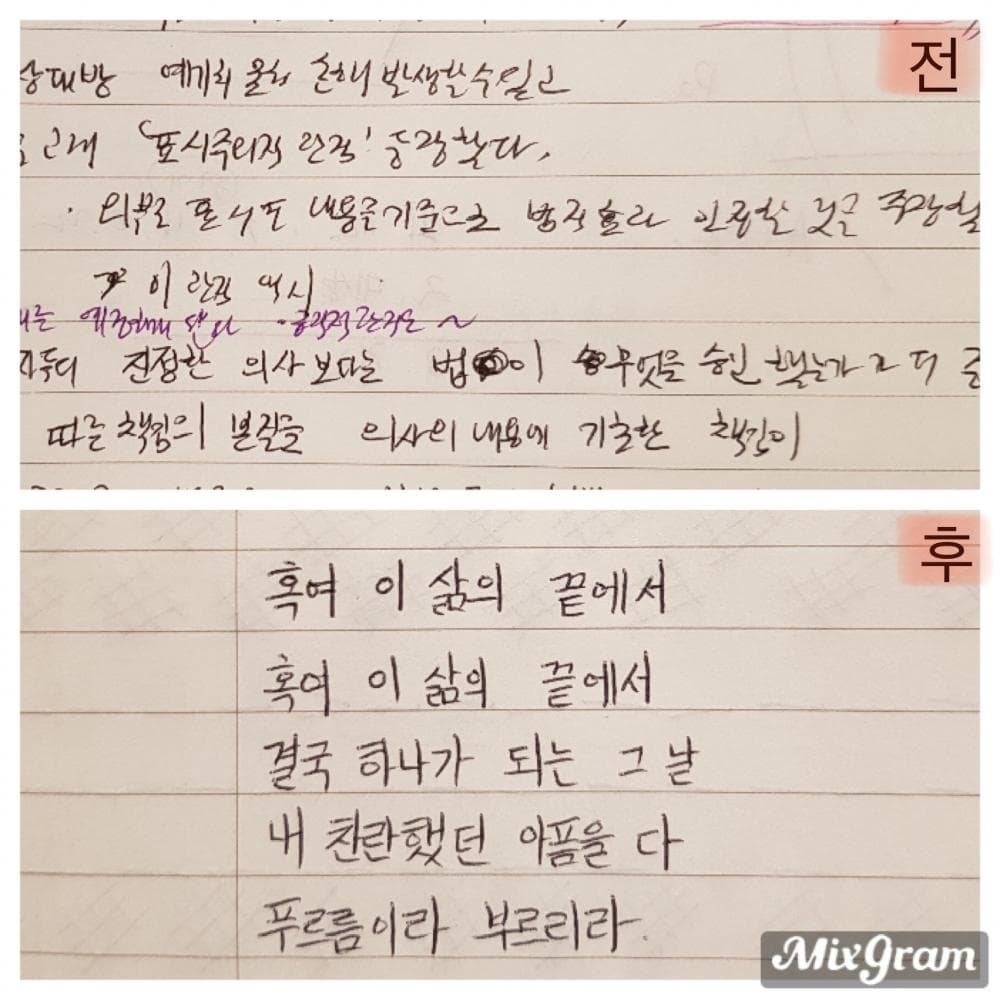 전
상대방 예기치 못한 손해 발생할수있고
고려 '표시주의적 관점' 등장했다.
· 외부로 표시된 내용을 기준으로 법적효과 인정할 것을 주장할
이 관점 역시
예정에 · 규범적관점은 ~
진정한 의사 보다는 법이 무엇을 승인 했는가
따른 책임의 본질을 의사의 내용에 기초한 책임이
후
혹여 이 삶의 끝에서
혹여 이 삶의 끝에서
결국 하나가 되는 그 날
내 찬란했던 아픔을 다
푸르름이라 부르리라.
MixGram